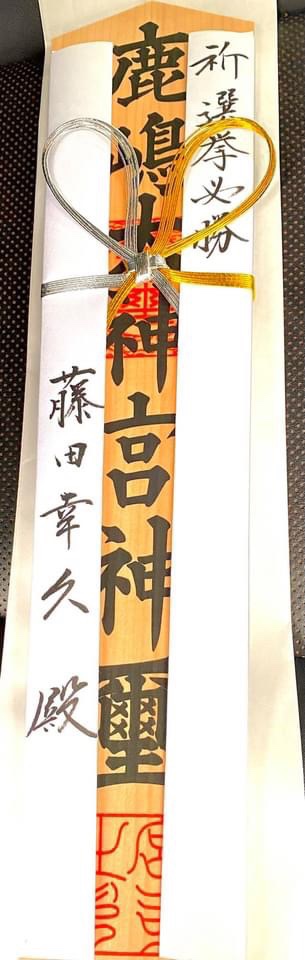 祈選挙必勝
鹿嶋大神宮神璽
藤田幸久殿